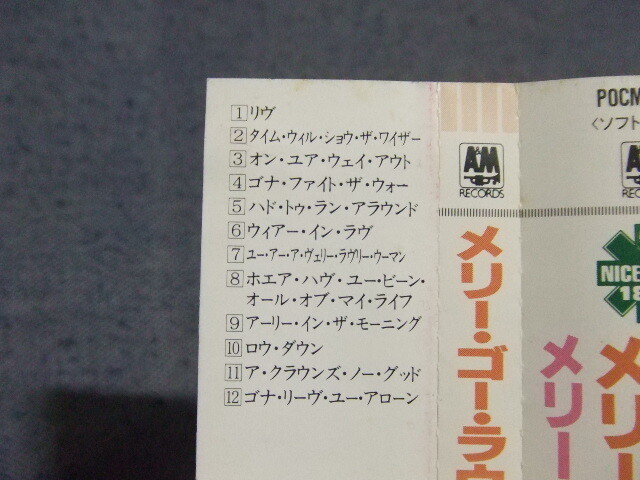 1 リヴ
2 タイム・ウィル・ショウ・ザ・ワイザー
3 オン・ユア・ウェイ・アウト
4 ゴナ・ファイト・ザ・ウォー
5 ハド・トゥ・ラン・アラウンド
6 ウィアー・イン・ラヴ
7 ユー・アー・ア・ヴェリー・ラヴリー・ウーマン
8 ホエア・ハヴ・ユー・ビーン・
オール・オブ・マイ・ライフ
9 アーリー・イン・ザ・モーニング
10 ロウ・ダウン
11 ア・クラウンズ・ノー・グッド
12 ゴナ・リーヴ・ユー・アローン
A&M
RECORDS
メリー・ゴー・ラウ
POCM
〈ソフト
REC
NICE
18
メリー
メリー